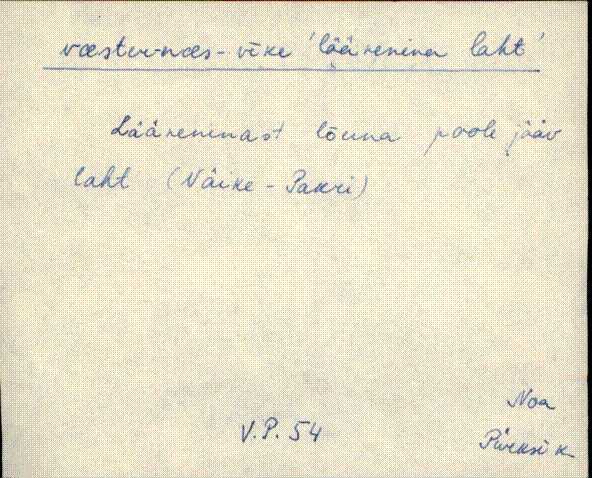 væster-næs-vīke 'läänenina laht'
Lääneninast lõuna poole jääv
laht (Väike-Pakri)
Noa
V.P. 54
Pürksi k